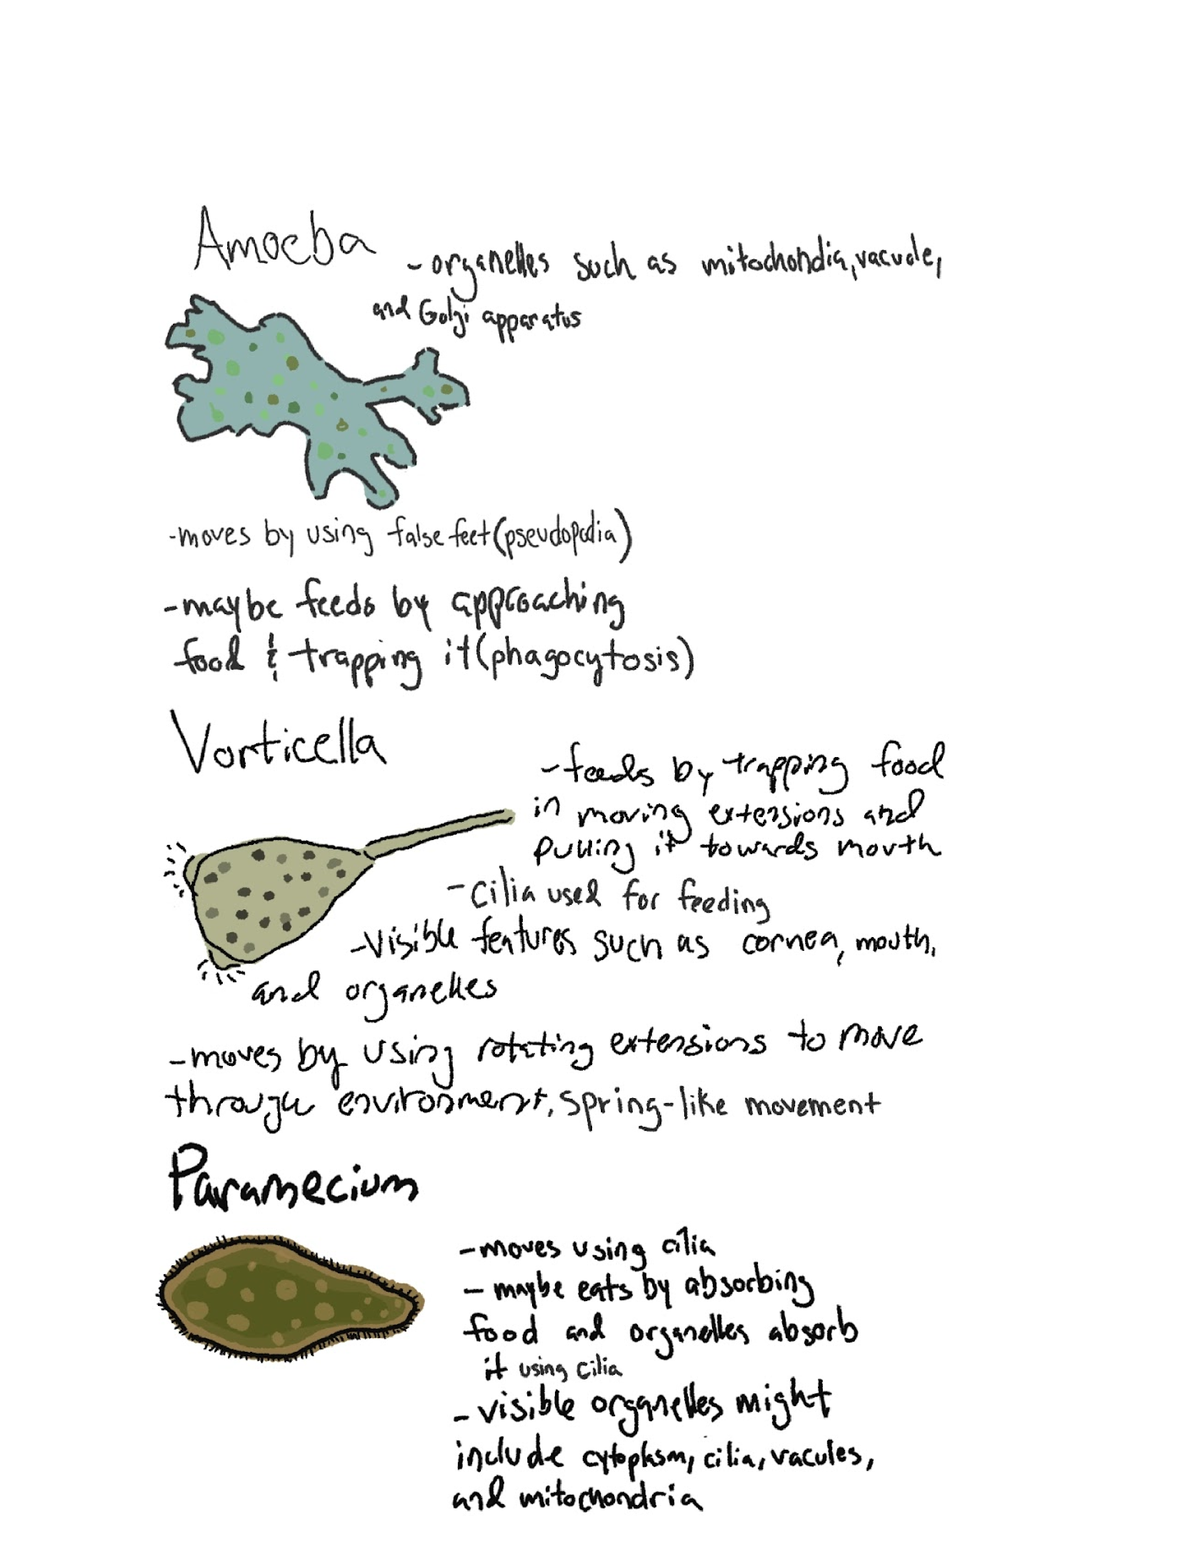 Amoeba
- organelles such as mitochondia, vacuole,
and Golgi apparatus
- moves by using false feet (pseudopodia)
- maybe feeds by approaching
food & trapping it (phagocytosis)
Vorticella
- feeds by trapping food
in moving extensions and
pulling it towards mouth
- cilia used for feeding
- visible features such as cornea, mouth,
and organelles
- moves by using rotating extensions to move
through environment, spring-like movement
Paramecium
- moves using cilia
- maybe eats by absorbing
food and organelles absorb
it using cilia
- visible organelles might
include cytoplasm, cilia, vacules,
and mitochondria